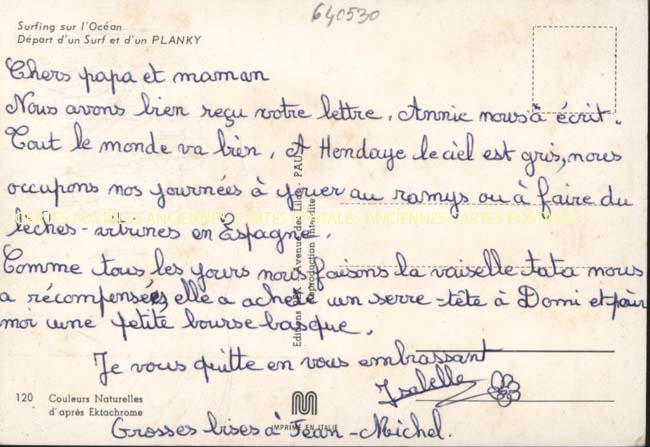 640530
Surfing sur l'Océan
Départ d'un Surf et d'un PLANKY
Chers papa et maman
Nous avons bien reçu votre lettre, Annie nous à écrit.
Tout le monde va bien, A Hendaye le ciel est gris, nous
occupons nos journées à jouer au ramys ou à faire du
lèches-vitrines en Espagne.
Comme tous les jours nous faisons la vaiselle tata nous
a récompensées, elle a acheté un serre-tête à Domi et pour
moi une petite bourse basque.
Je vous quitte en vous embrassant
Isabelle
Grosses bises à Jean-Michel.
120 Couleurs Naturelles
d'après Ektachrome
IMPRIMÉ EN ITALIE
Avenue des Lilas - PAU
Reproduction Interdite
CARTES POSTALES ANCIENNES CARTES POSTALES ANCIENNES CARTES POSTALES